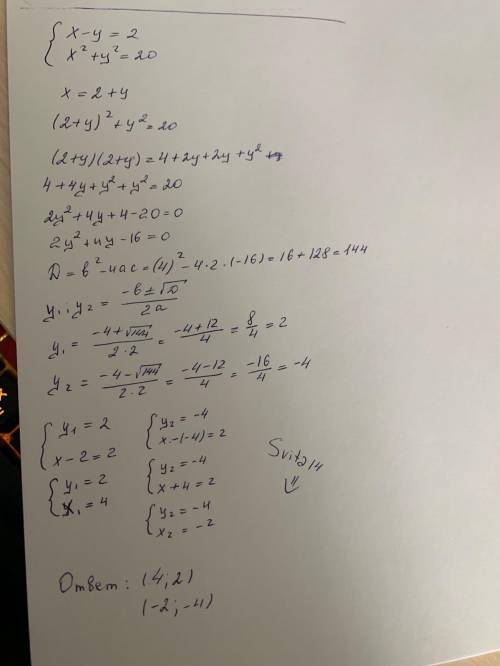 { x-y = 2
x² + y² = 20
x = 2 + y
(2+y)² + y² = 20
(2+y)(2+y) = 4 + 2y + 2y + y²
4 + 4y + y² + y² = 20
2y² + 4y + 4 - 20 = 0
2y² + 4y - 16 = 0
D = b² - 4ac = (4)² - 4·2·(-16) = 16 + 128 = 144
y₁; y₂ = (-b ± √D)/2a
y₁ = (-4 + √144)/(2·2) = (-4+12)/4 = 8/4 = 2
y₂ = (-4 - √144)/(2·2) = (-4-12)/4 = -16/4 = -4
{ y₁ = 2
x - 2 = 2
{ y₁ = 2
x₁ = 4
{ y₂ = -4
x - (-4) = 2
{ y₂ = -4
x + 4 = 2
{ y₂ = -4
x₂ = -2
Svita14
Ответ: (4; 2)
(-2; -4)